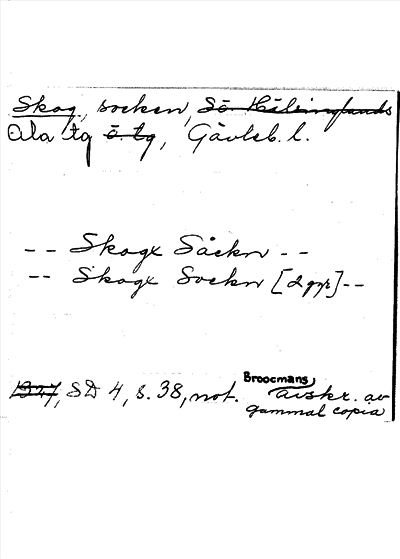 Skog, socken, Sö Hälsinglands
Ala tg ö. tg, Gävleb. l.
-- Skogx Såckn --
-- Skogx Sockn [2 ggr] --
1327, SD 4, s. 38, not. Broocmans avskr. av
gammal copia